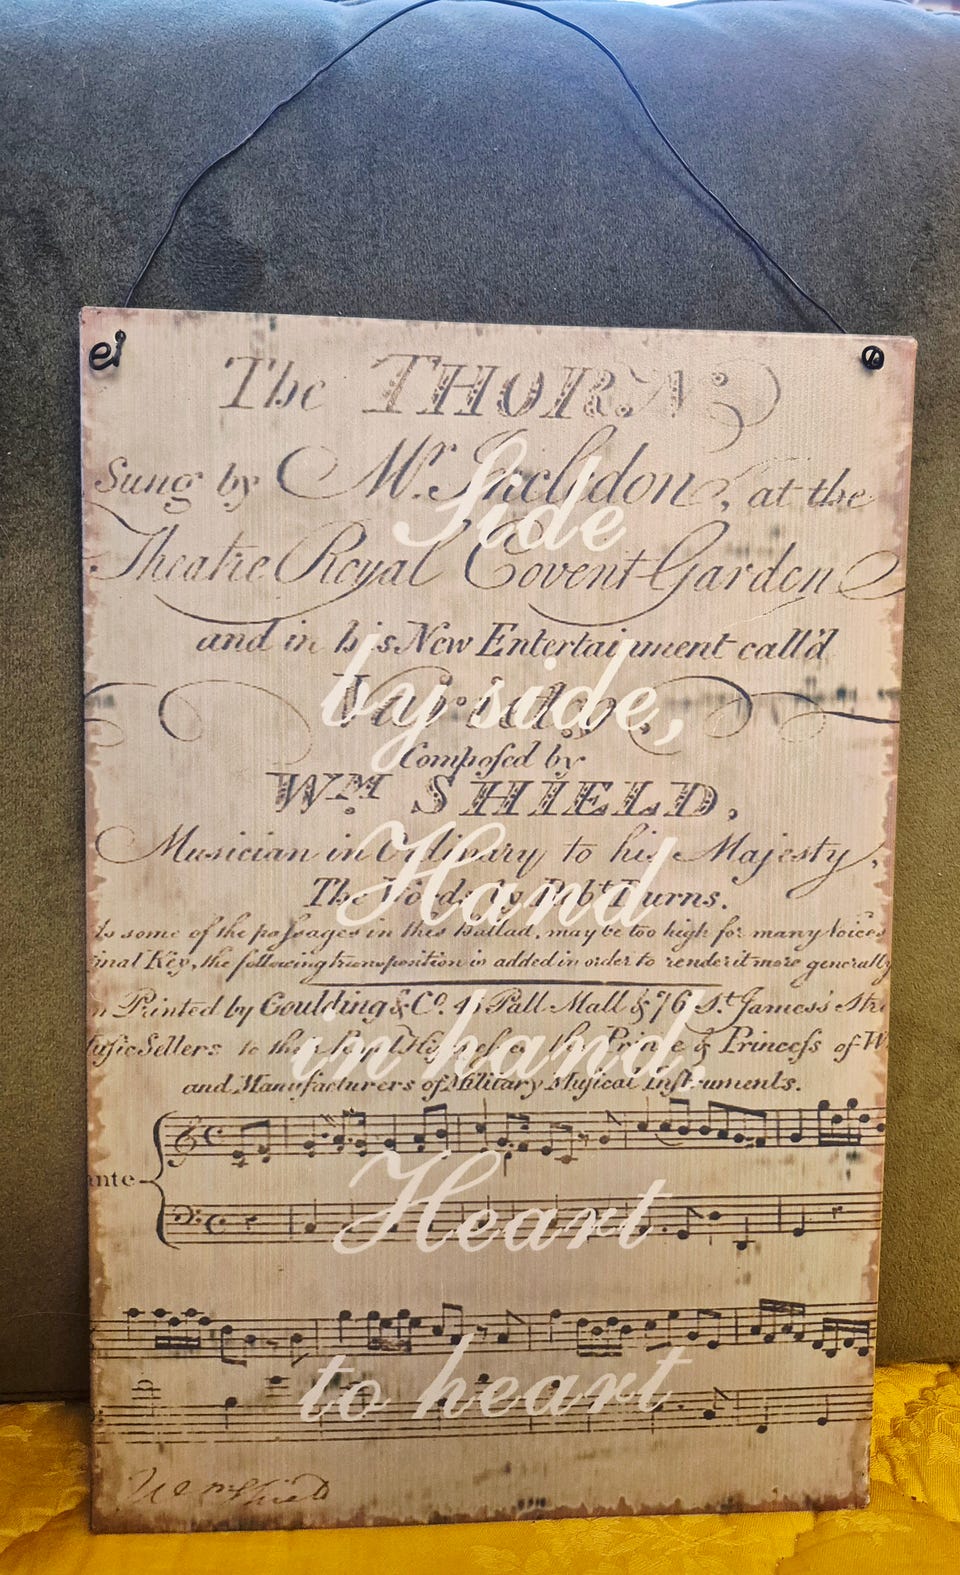 The THORN,
Sung by Mr. Incledon, at the
Theatre Royal Covent Garden
and in his New Entertainment call'd
Variety,
Composed by
Wm. SHIELD,
Musician in Ordinary to his Majesty,
The Words by Robt. Burns.
As some of the passages in this Ballad, may be too high for many Voices
inal Key, the following transposition is added in order to render it more generally
n Printed by Goulding & Co. 45 Pall Mall & 76 St. James's Stre
usic Sellers to their Royal Highnesses the Prince & Princess of W
and Manufacturers of Military Musical Instruments.
ante
Wm Shield
Side
by side,
Hand
in hand,
Heart
to heart